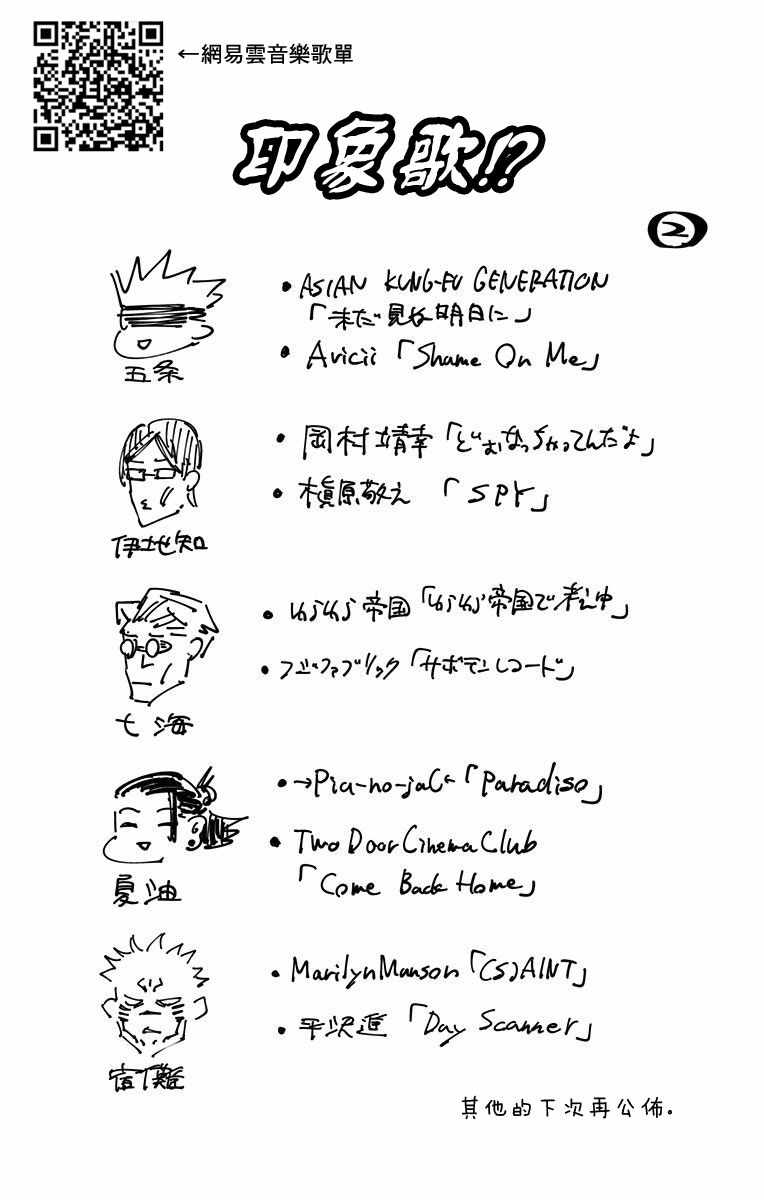 ←網易雲音樂歌單
印象歌!?
2
• ASIAN KUNG-FU GENERATION
「未だ見ぬ明日に」
• Avicii「Shame On Me」
五条
• 岡村靖幸「どぉなっちゃってんだよ」
• 槇原敬之 「SPY」
伊地知
• ゆらゆら帝国「ゆらゆら帝国で考え中」
• フジファブリック「サボテンレコード」
七海
• →Pia-no-jaC←「Paradiso」
• Two Door Cinema Club
「Come Back Home」
夏油
• Marilyn Manson「(S)AINT」
• 平沢進 「Day Scanner」
宿儺
其他的下次再公佈.